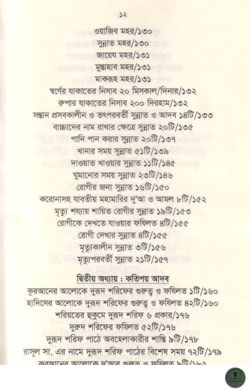 ১২
ওয়াজিব মহর/১৩০
সুন্নাত মহর/১৩০
জায়েয মহর/১৩১
মুস্তাহাব মহর/১৩১
মাকরূহ মহর/১৩১
স্বর্ণের যাকাতের নিসাব ২০ মিসকাল/দিনার/১৩২
রুপার যাকাতের নিসাব ২০০ দিরহাম/১৩২
সন্তান প্রসবকালীন ও তৎপরবর্তী সুন্নাত ও আদব ১৪টি/১৩৩
বাচ্চাদের নাম রাখার ক্ষেত্রে সুন্নাত ২০টি/১৩৫
পানি পান করার সুন্নাত ২০টি/১৩৭
খানার সময় সুন্নাত ৫১টি/১৩৯
দাওয়াত খাওয়ার সুন্নাত ১১টি/১৪৫
ঘুমানোর সময় সুন্নাত ২৩টি/১৪৬
রোগীর জন্য সুন্নাত ১৬টি/১৫০
করোনাসহ যাবতীয় মহামারির দু'আ ও আমল ৮টি/১৫২
মৃত্যু শয্যায় শায়িত রোগীর সুন্নাত ১৯টি/১৫৩
রোগীকে দেখতে যাওয়ার ফযিলত ৪টি/১৫৫
রোগী দেখার সুন্নাত ৪টি/১৫৫
মৃত্যুকালীন সুন্নাত ৩টি/১৫৬
মৃত্যুপরবর্তী সুন্নাত ২১টি/১৫৬
দ্বিতীয় অধ্যায় : কতিপয় আদব
কুরআনের আলোকে দুরূদ শরিফের গুরুত্ব ও ফযিলত ১টি/১৬০
হাদিসের আলোকে দুরূদ শরিফের গুরুত্ব ও ফযিলত ৪২টি/১৬০
শরিয়তের হুকুমে দুরূদ শরিফ ৬ প্রকার/১৭৬
দুরুদ শরিফের ফযিলত ৫২টি/১৭৬
দুরূদ শরিফ পাঠে অবহেলাকারীর শাস্তি ৯টি/১৭৮
রাসূল সা. এর নামে দুরূদ শরিফ পাঠের বিশেষ সময় ৭২টি/১৭৯